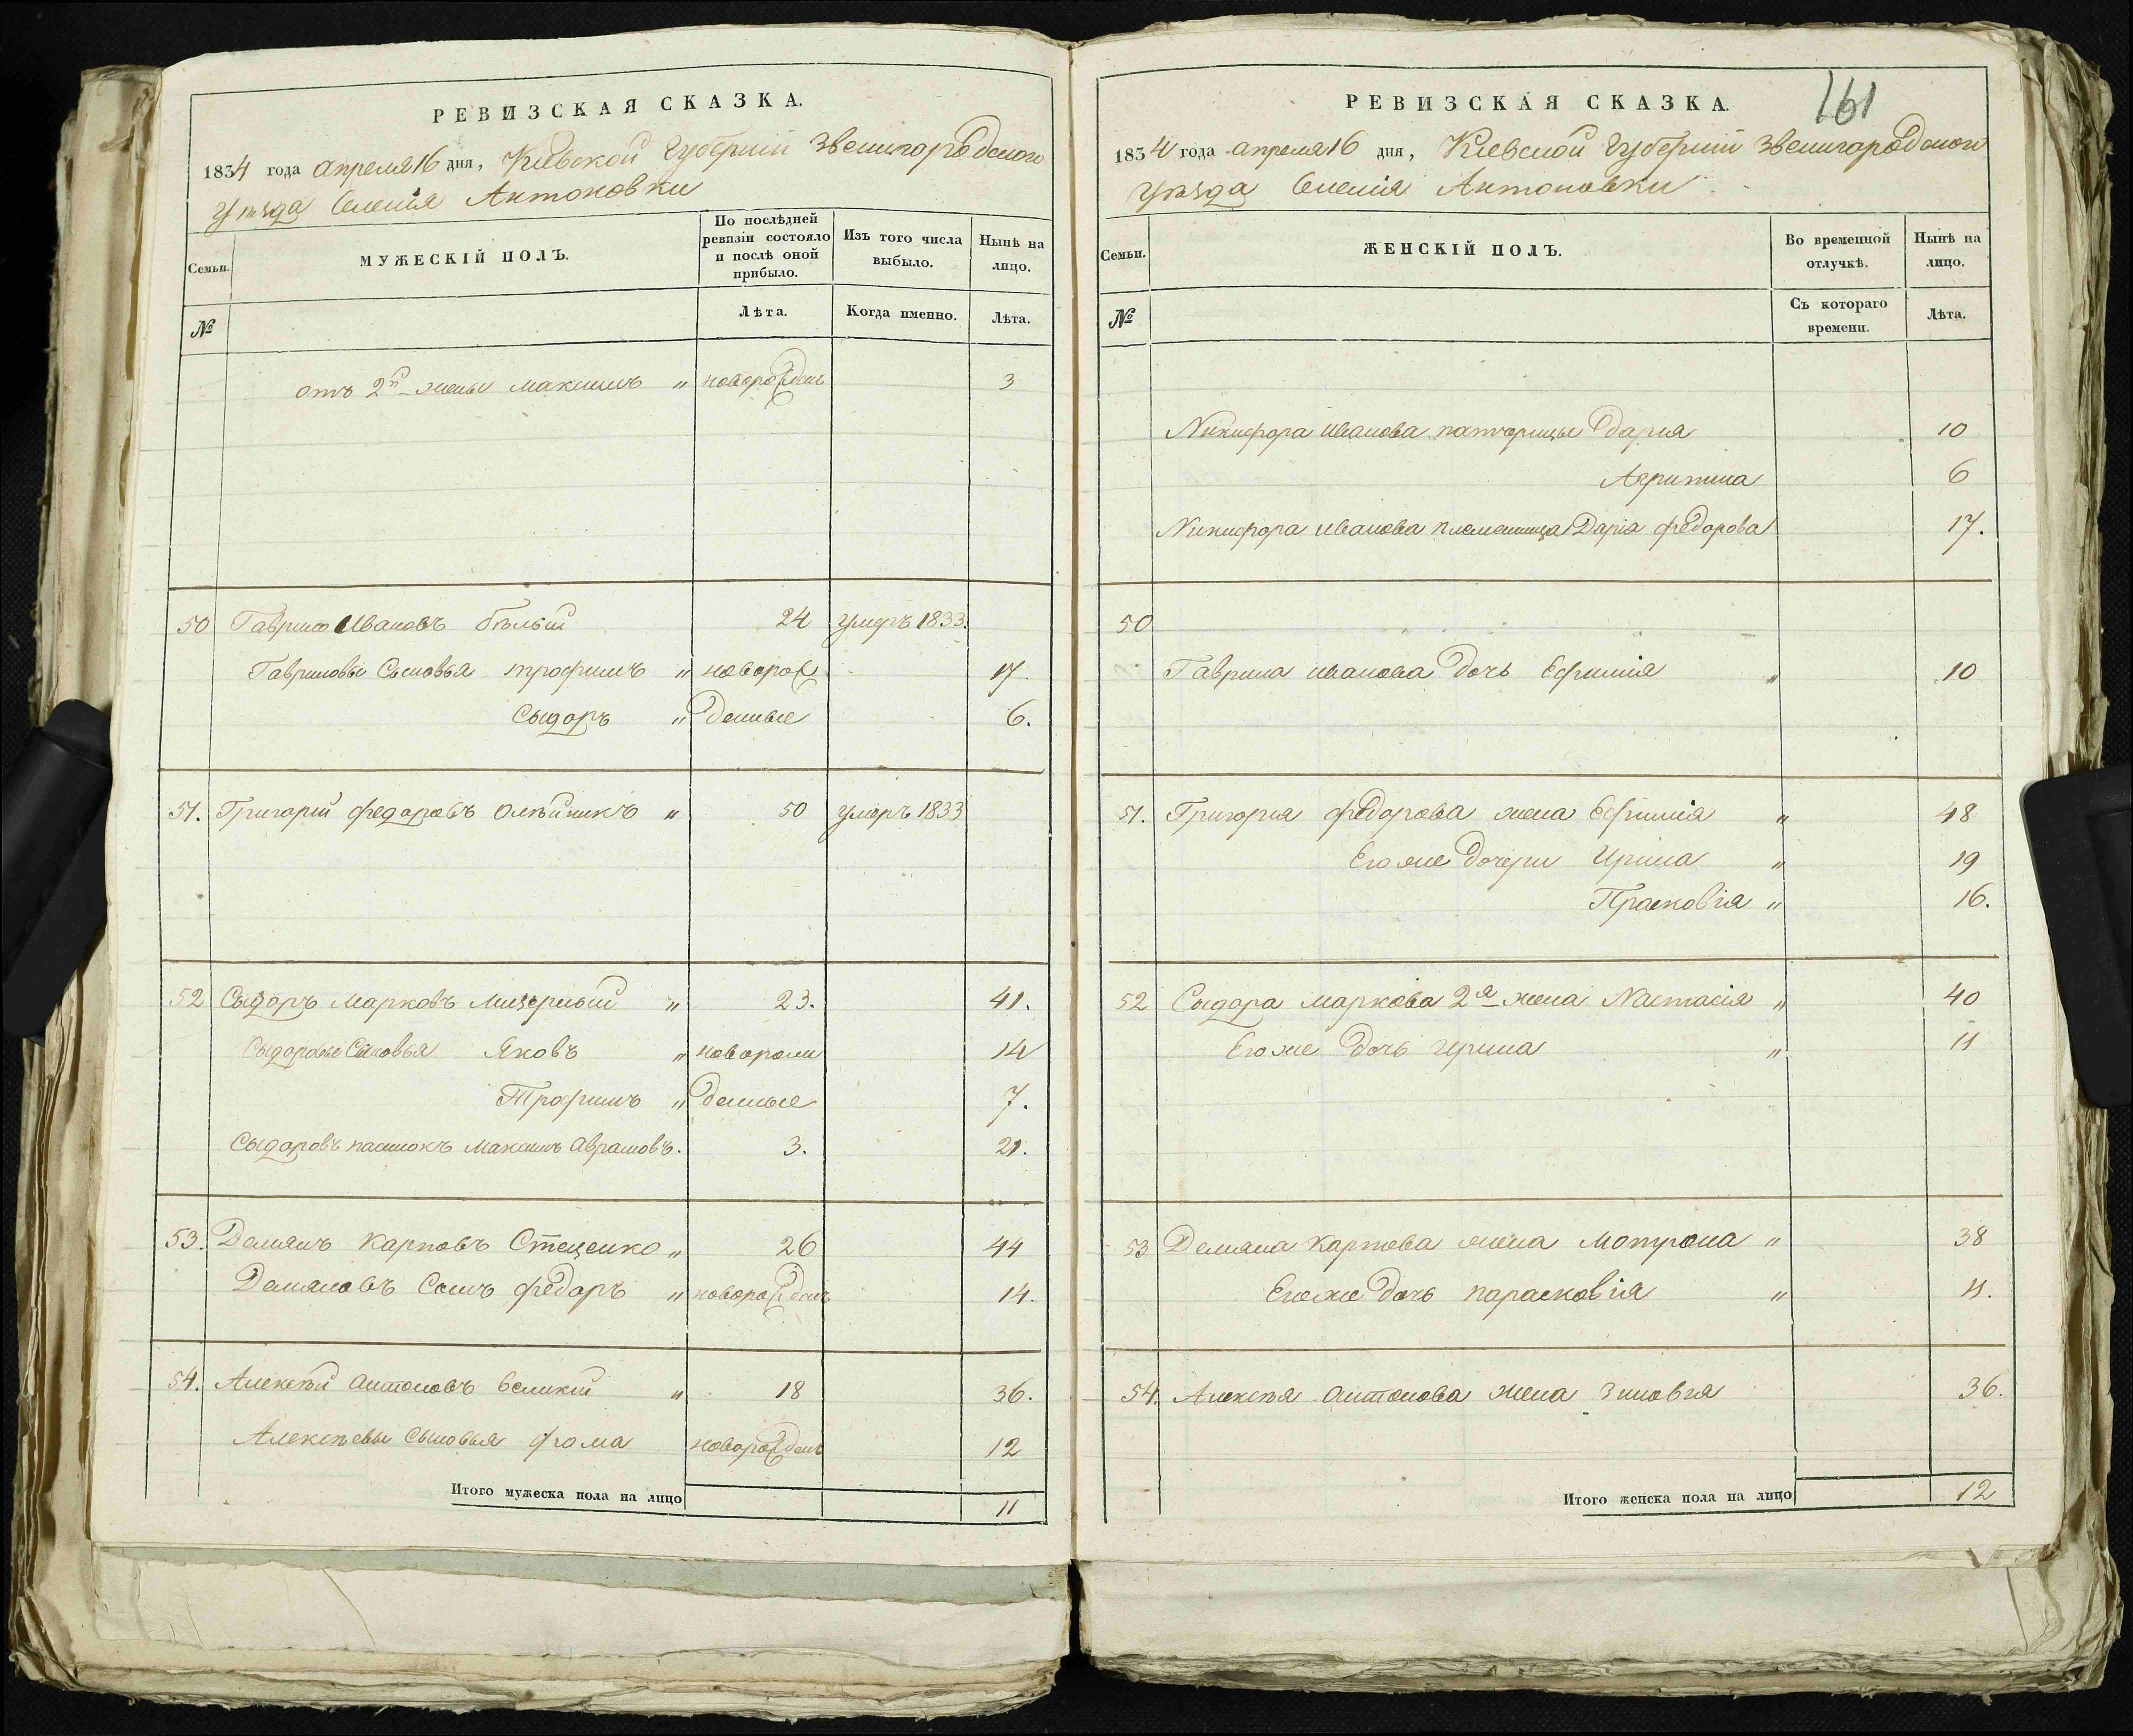 РЕВИЗСКАЯ СКАЗКА.
1834 года апреля 16 дня, Киевской Губернии Звенигородского
уѣзда Селенія Антоновки
Семьи. МУЖЕСКІЙ ПОЛЪ. По послѣдней ревизіи состояло и послѣ оной прибыло. Изъ того числа выбыло. Нынѣ на лицо.
№ Лѣта. Когда именно. Лѣта.
отъ 2й жены Максимъ " новорожденъ 3
50 Гаврило Ивановъ Бѣлый 24 умеръ 1833.
Гавриловы Сыновья трофимъ " новорож 17.
Сыдоръ " денные 6.
51. Григорій федоровъ Олѣйникъ " 50 умеръ 1833
52 Сыдоръ Марковъ Мизерный " 23. 41.
Сыдоровы Сыновья Яковъ " новорож 14
Трофимъ " денные 7.
Сыдоровъ пасынокъ Максимъ Аврамовъ. 3. 21.
53. Демянъ Карповъ Стеценко " 26 44
Демяновъ Сынъ федоръ " новорожденъ 14.
54. Алексѣй Антоновъ Великій " 18 36.
Алексѣевы Сыновья фома новорожденъ 12
Итого мужеска пола на лицо 11
161
РЕВИЗСКАЯ СКАЗКА.
1834 года апреля 16 дня, Киевской Губернии Звенигородского
уѣзда Селенія Антоновки
Семьи. ЖЕНСКІЙ ПОЛЪ. Во временной отлучкѣ. Нынѣ на лицо.
№ Съ котораго времени. Лѣта.
Никифора Иванова патчерицы Дария 10
Агрипина 6
Никифора Иванова племенница Дарія федорова 17.
50
Гаврила иванова Дочь Ефимія " 10
51. Григория федорова жена Ефимія " 48
Его же Дочери Ирина " 19
Прасковія " 16.
52 Сыдора Маркова 2я жена Настасія " 40
Его же Дочь Ирина " 11
53 Демяна Карпова жена Мотрона " 38
Его же Дочь Парасковія " 11.
54. Алексѣя Антонова жена Зиновія 36.
Итого женска пола на лицо 12